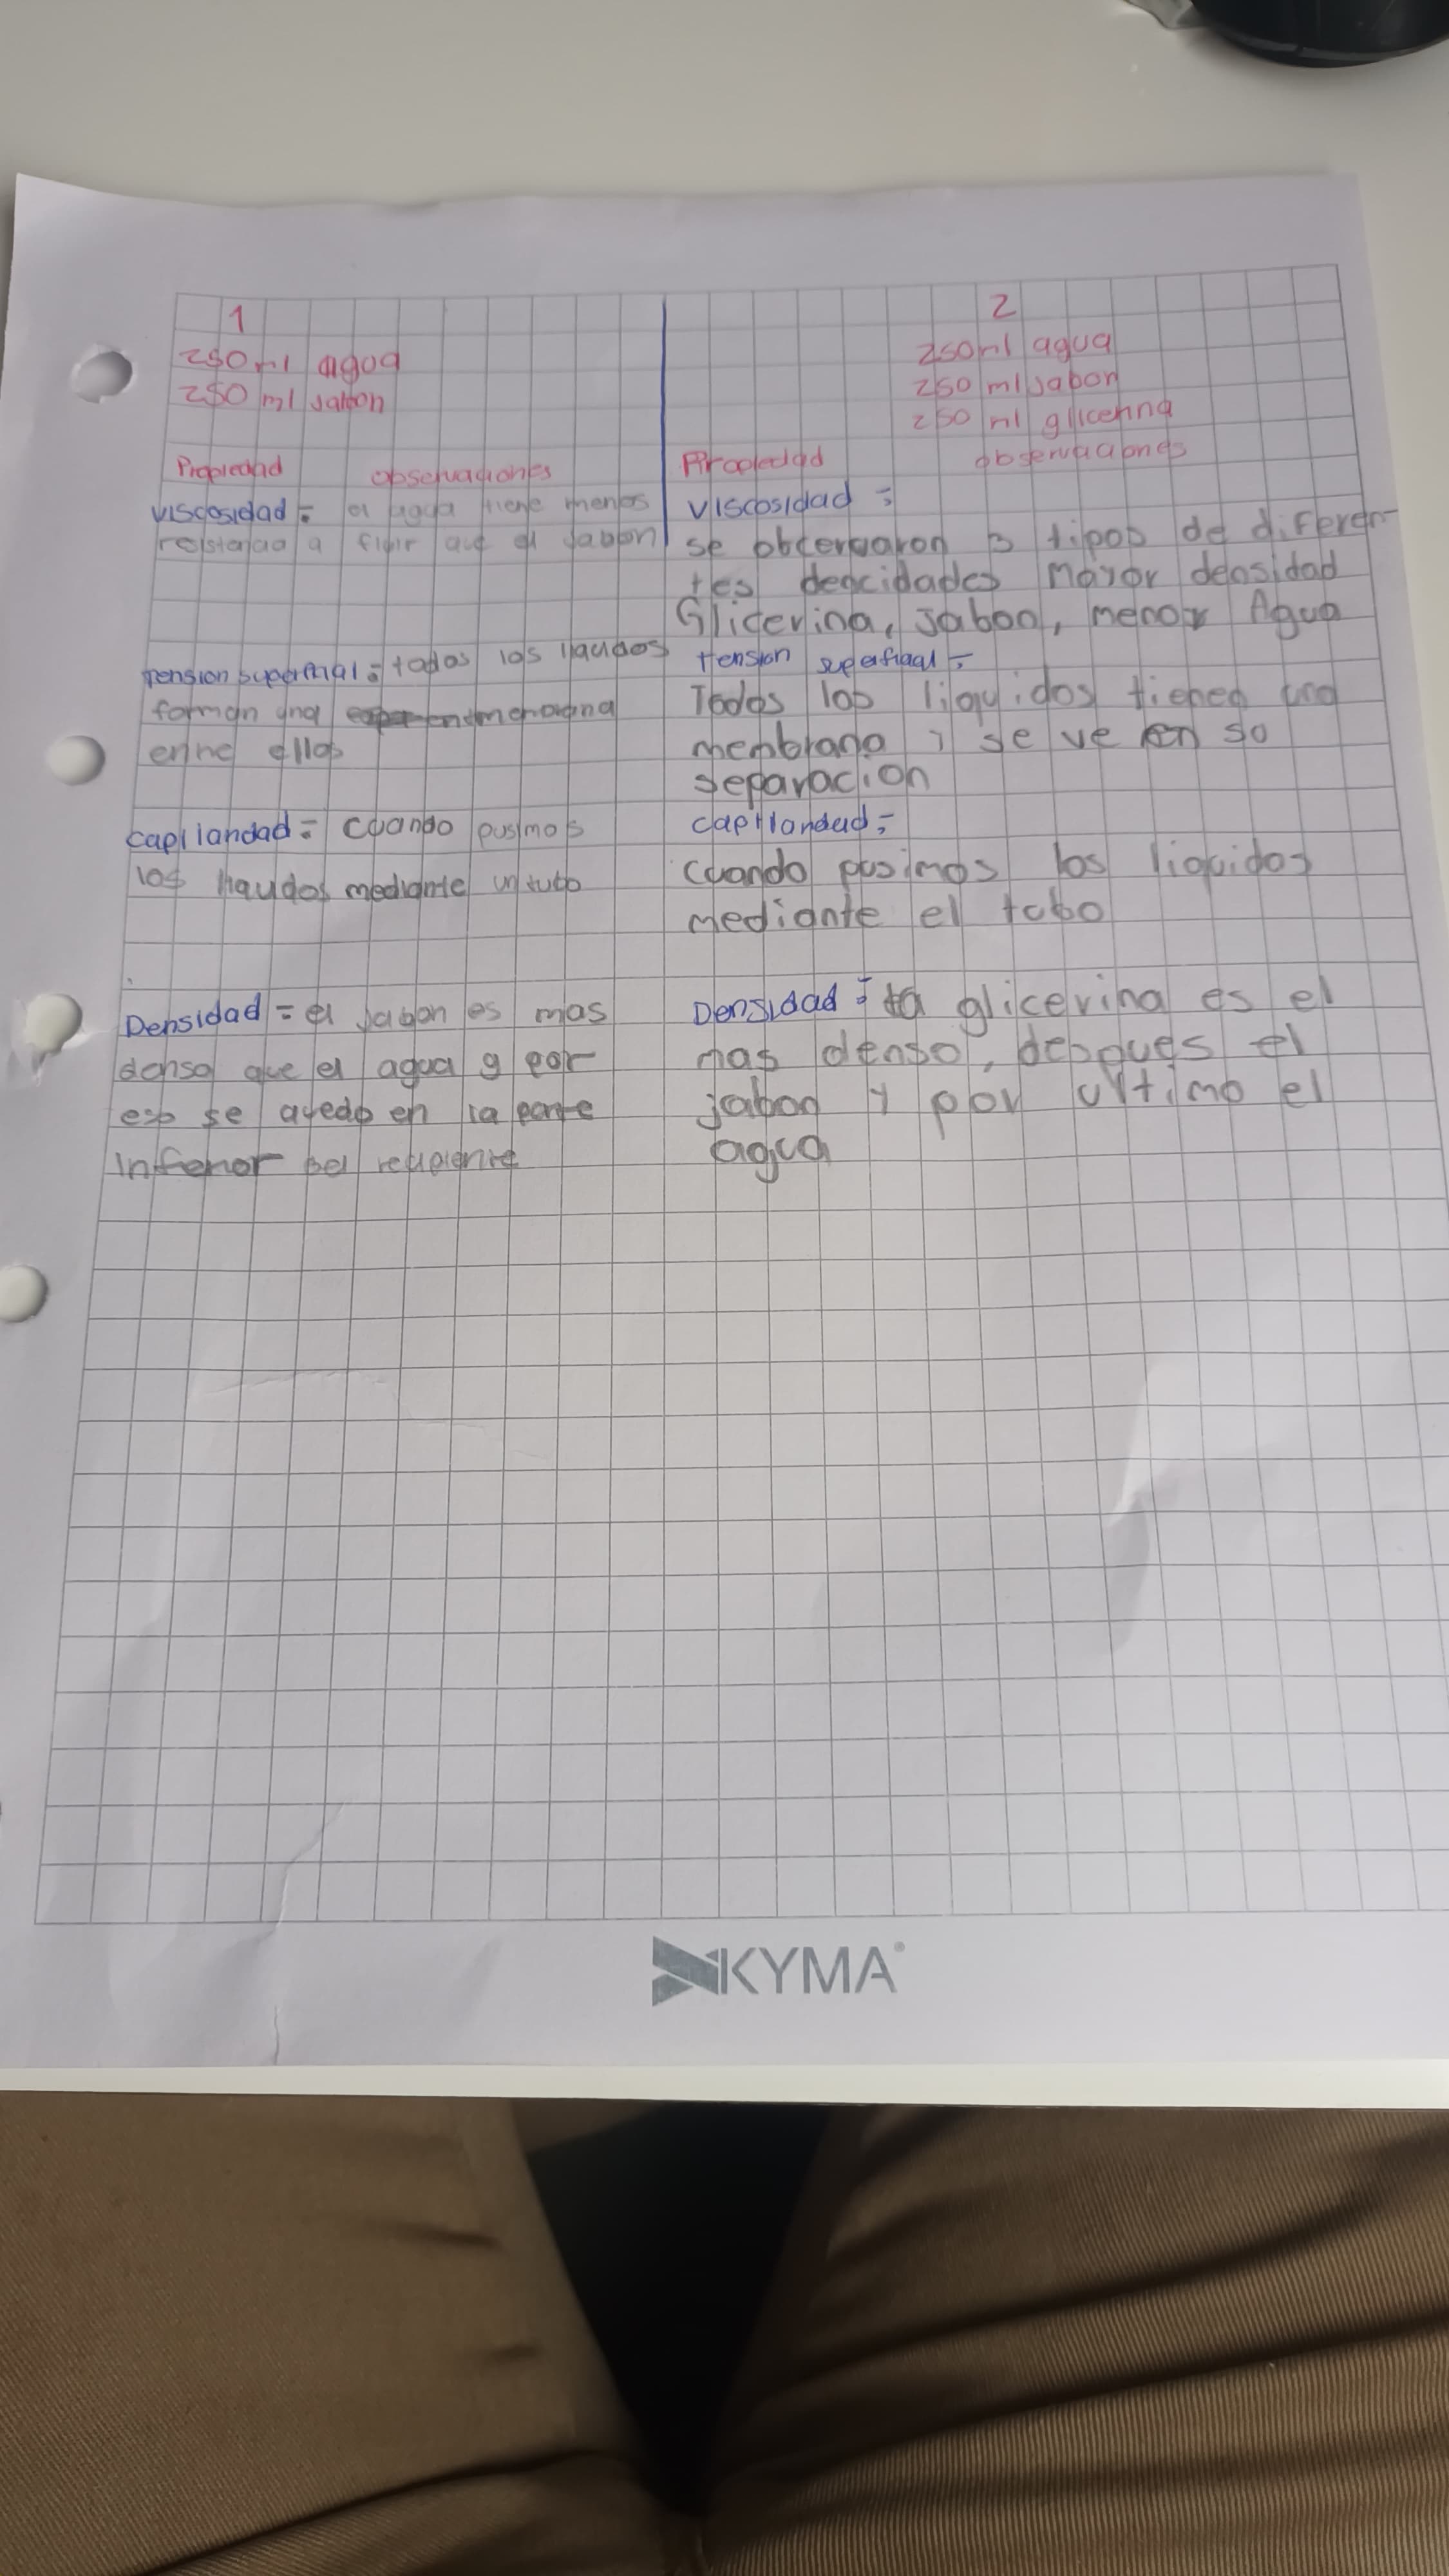 1
250 ml agua
250 ml jabon
Propiedad observaciones
viscosidad = el agua tiene menos
resistencia a fluir que el jabon
Tension superficial = todos los liquidos
forman una membrana
entre ellos
capilaridad = Cuando pusimos
los liquidos mediante un tubo
Densidad = el jabon es mas
denso que el agua y por
eso se quedo en la parte
inferior del recipiente
2
250 ml agua
250 ml jabon
250 ml glicerina
Propiedad observaciones
viscosidad =
se obcervaron 3 tipos de diferen-
tes dencidades mayor densidad
Glicerina, jabon, menor Agua
tension superficial =
Todos los liquidos tienen una
membrana y se ve en su
separacion
capilaridad =
Cuando pusimos los liquidos
mediante el tubo
Densidad = la glicerina es el
mas denso, despues el
jabon y por ultimo el
agua
KYMA